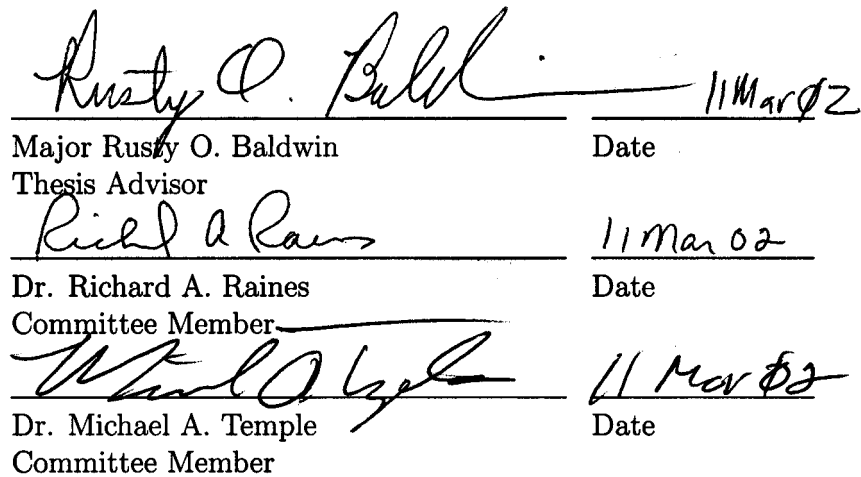 Rusty O. Baldwin 11 Mar 02
Major Rusty O. Baldwin Date
Thesis Advisor
Richard A Raines 11 Mar 02
Dr. Richard A. Raines Date
Committee Member
Michael A Temple 11 Mar 02
Dr. Michael A. Temple Date
Committee Member